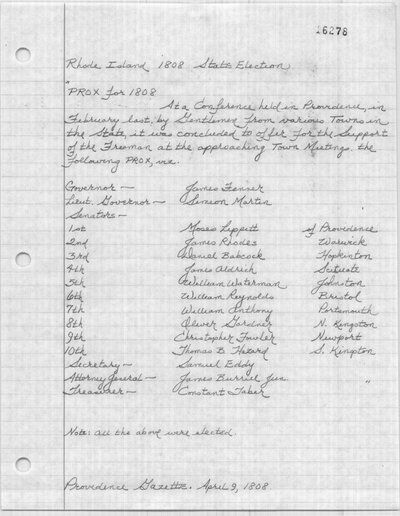 16278
Rhode Island 1808 State Election
"
PROX for 1808
At a Conference held in Providence, in
February last, by Gentlemen from various Towns in
the State, it was concluded to offer for the Support
of the Freeman at the approaching Town Meetings. the
following PROX, viz.
Governor — James Fenner
Lieut. Governor — Simeon Martin
Senators —
1st Moses Lippitt of Providence
2nd James Rhodes Warwick
3rd Daniel Babcock Hopkinton
4th James Aldrich Scituate
5th William Waterman Johnston
6th William Reynolds Bristol
7th William Anthony Portsmouth
8th Oliver Gardner N. Kingston
9th Christopher Fowler Newport
10th Thomas B. Hazard S. Kingston
Secretary — Samuel Eddy
Attorney General — James Burrill Jun. "
Treasurer — Constant Taber
Note: all the above were elected.
Providence Gazette. April 9, 1808